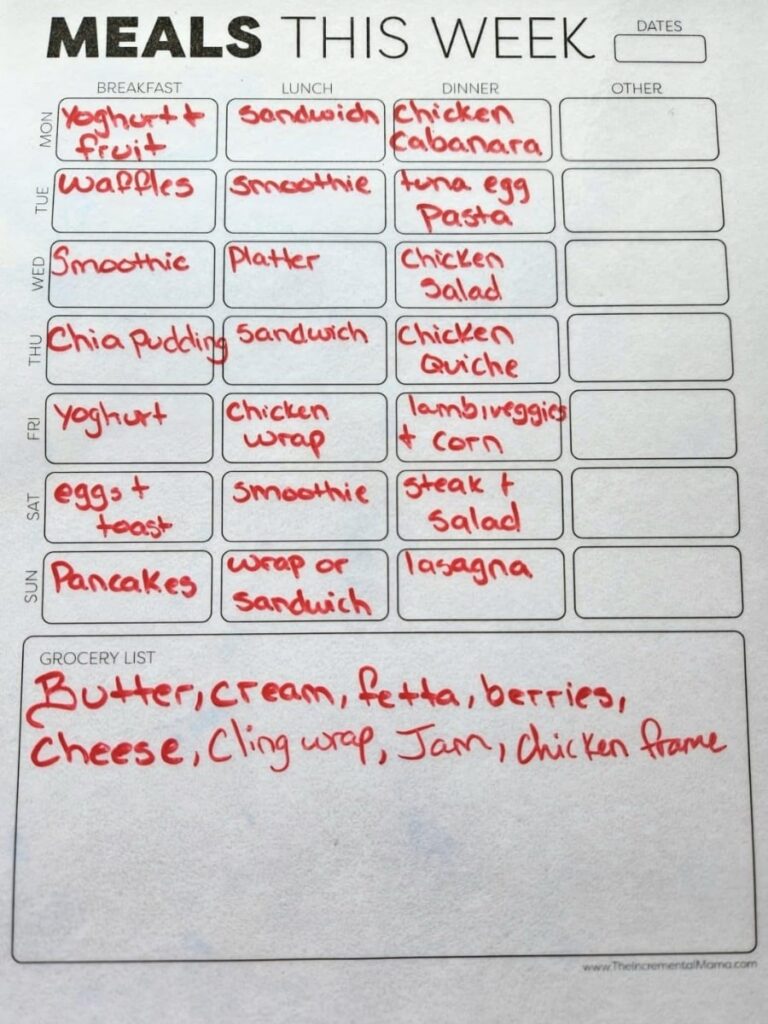 MEALS THIS WEEK
DATES
BREAKFAST LUNCH DINNER OTHER
MON
Yoghurt + fruit
sandwich
Chicken Cabanara
TUE
Waffles
smoothie
tuna egg Pasta
WED
Smoothie
Platter
Chicken Salad
THU
Chia pudding
Sandwich
Chicken Quiche
FRI
Yoghurt
Chicken wrap
lamb, veggies + corn
SAT
eggs + toast
smoothie
steak + Salad
SUN
Pancakes
wrap or sandwich
lasagna
GROCERY LIST
Butter, cream, fetta, berries,
Cheese, Cling wrap, Jam, Chicken frame
www.TheIncrementalMama.com